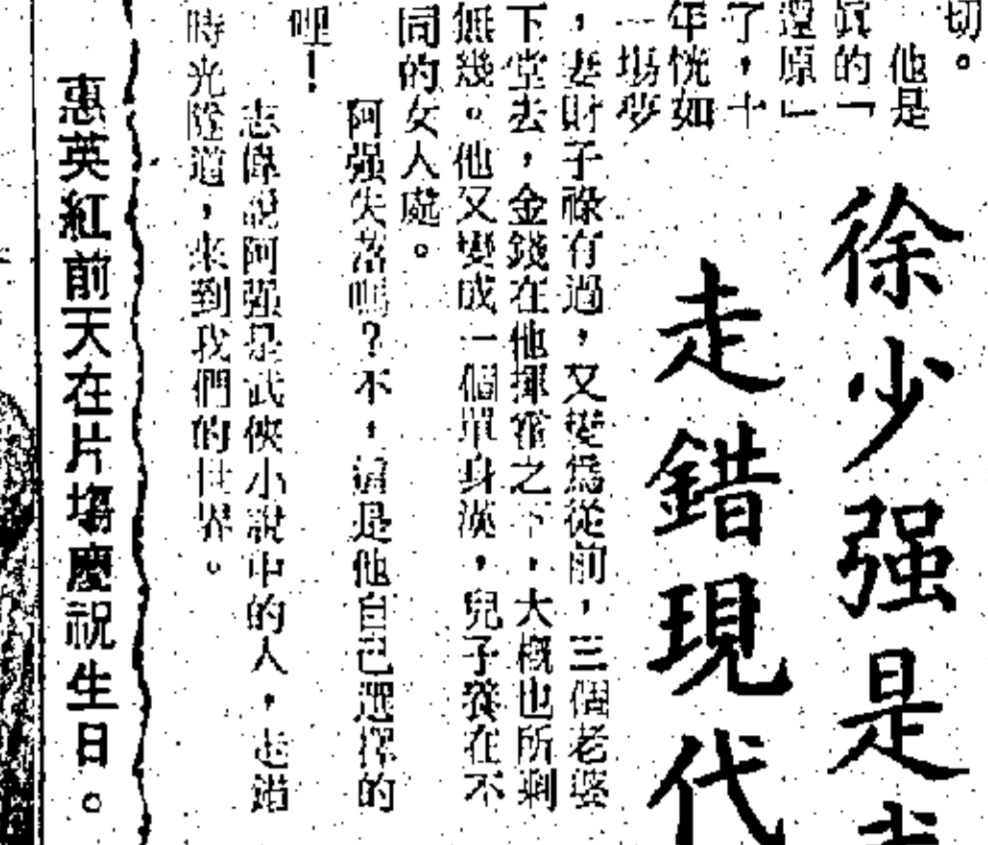 徐少强是
走錯現代
切。
他是
眞的「
還原」
了，十
年恍如
一場夢
，妻財子祿有過，又變爲從前，三個老婆
下堂去，金錢在他揮霍之下，大概也所剩
無幾。他又變成一個單身漢，兒子養在不
同的女人處。
阿强失落嗎？不，這是他自己選擇的
哩！
志偉說阿强是武俠小說中的人，走錯
時光隧道，來到我們的世界。
惠英紅前天在片塲慶祝生日。